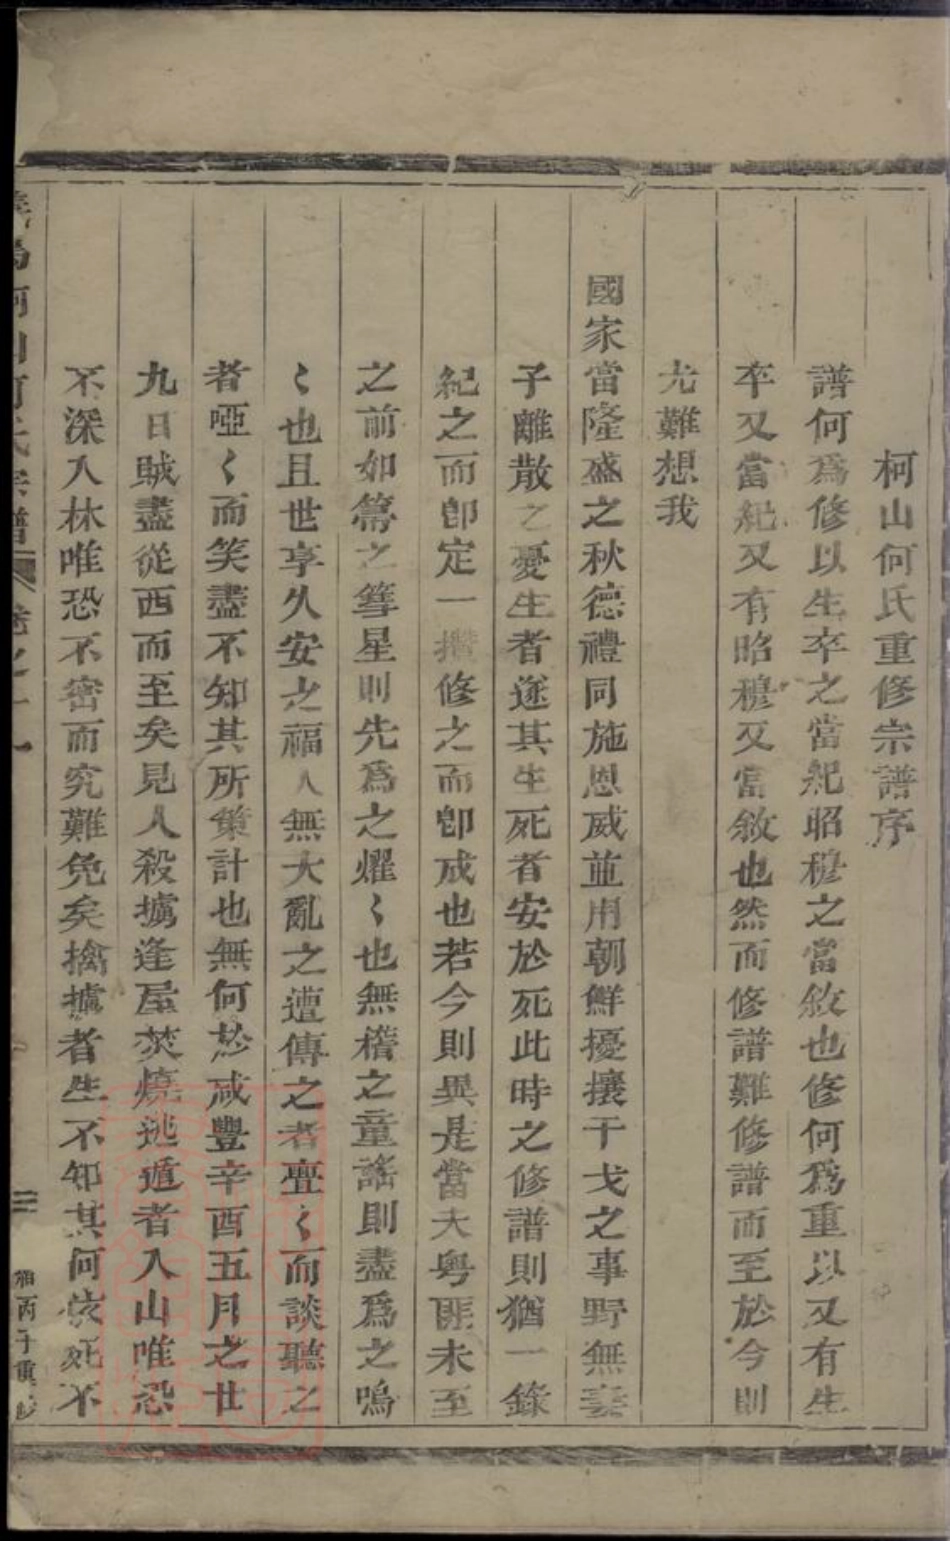 柯山何氏重修宗譜序
譜何爲修以生卒之當紀昭穆之當敘也修何爲重以又有生
卒又當紀又有昭穆又當敘也然而修譜難修譜而至於今則
尤難想我
國家當隆盛之秋德禮同施恩威並用朝鮮擾攘干戈之事野無妻
子離散之憂生者遂其生死者安於死此時之修譜則猶一錄
紀之而卽定一攢修之而卽成也若今則異是當大粤匪未至
之前如箒之篲星則先爲之燿〻也無稽之童謠則盡爲之鳴
〻也且世享久安之福人無大亂之遭傳之者亹〻而談聽之
者啞〻而笑盡不知其所策計也無何於咸豐辛酉五月之廿
九日賊盡從西而至矣見人殺擄逢屋焚燒逃遁者入山唯恐
不深入林唯恐不密而究難免矣擒擄者生不知其何 死不
義烏柯山何氏宗譜 卷之一
三
丙子重